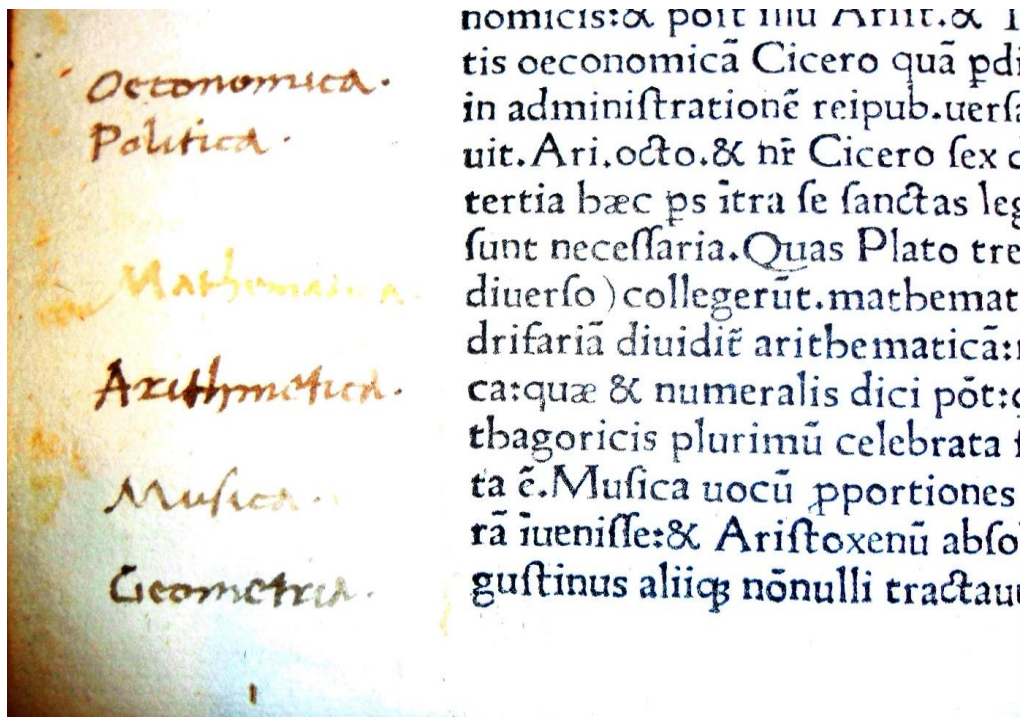 Oeconomica.
Politica.
Mathematica.
Arithmetica.
Musica.
Geometria.
nomicis:& post illū Arist.&
tis oeconomicā Cicero quā ꝓdi
in adminiſtrationē reipub.uerſa
uit.Ari.octo.& nr̄ Cicero ſex
tertia hæc ps ītra ſe ſanctas leg
ſunt neceſſaria.Quas Plato tre
diuerſo)collegerūt.mathemat
drifariā diuidit̄ arithematicā:
ca:quæ & numeralis dici pōt:
thagoricis plurimū celebrata
ta ē.Muſica uocū ꝓportiones
rā īueniſſe:& Ariſtoxenū abſo
guſtinus aliiqꝫ nōnulli tractau